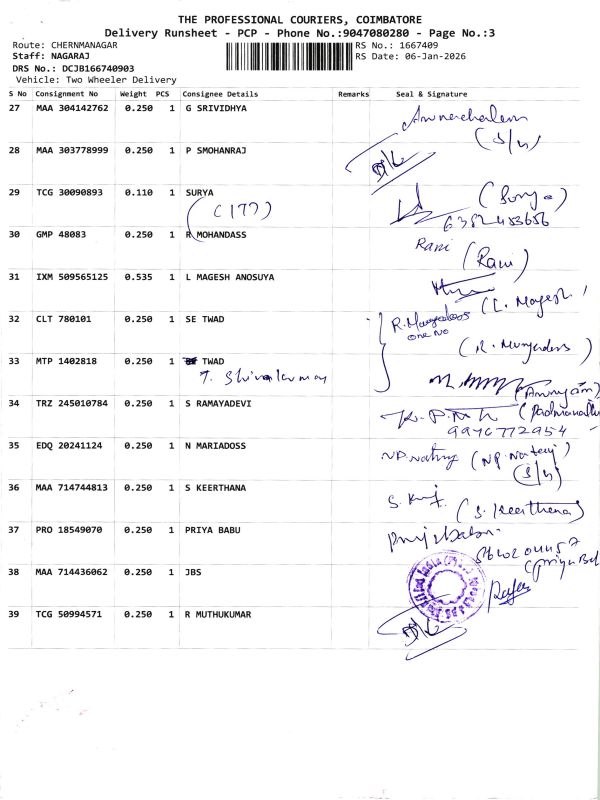 THE PROFESSIONAL COURIERS, COIMBATORE
Delivery Runsheet - PCP - Phone No.:9047080280 - Page No.:3
Route: CHERNMANAGAR
RS No.: 1667409
Staff: NAGARAJ
RS Date: 06-Jan-2026
DRS No.: DCJB166740903
Vehicle: Two Wheeler Delivery
S No Consignment No Weight PCS Consignee Details Remarks Seal & Signature
27 MAA 304142762 0.250 1 G SRIVIDHYA
(S/N)
28 MAA 303778999 0.250 1 P SMOHANRAJ
D/L
29 TCG 30090893 0.110 1 SURYA
(Surya)
(177)
30 GMP 48083 0.250 1 R MOHANDASS
Rani (Rani)
31 IXM 509565125 0.535 1 L MAGESH ANOSUYA
(L. Magesh)
32 CLT 780101 0.250 1 SE TWAD
one no
33 MTP 1402818 0.250 1 TWAD
34 TRZ 245010784 0.250 1 S RAMAYADEVI
9976772954
35 EDQ 20241124 0.250 1 N MARIADOSS
(S/N)
36 MAA 714744813 0.250 1 S KEERTHANA
(S. Keerthana)
37 PRO 18549070 0.250 1 PRIYA BABU
38 MAA 714436062 0.250 1 JBS
39 TCG 50994571 0.250 1 R MUTHUKUMAR
D/L